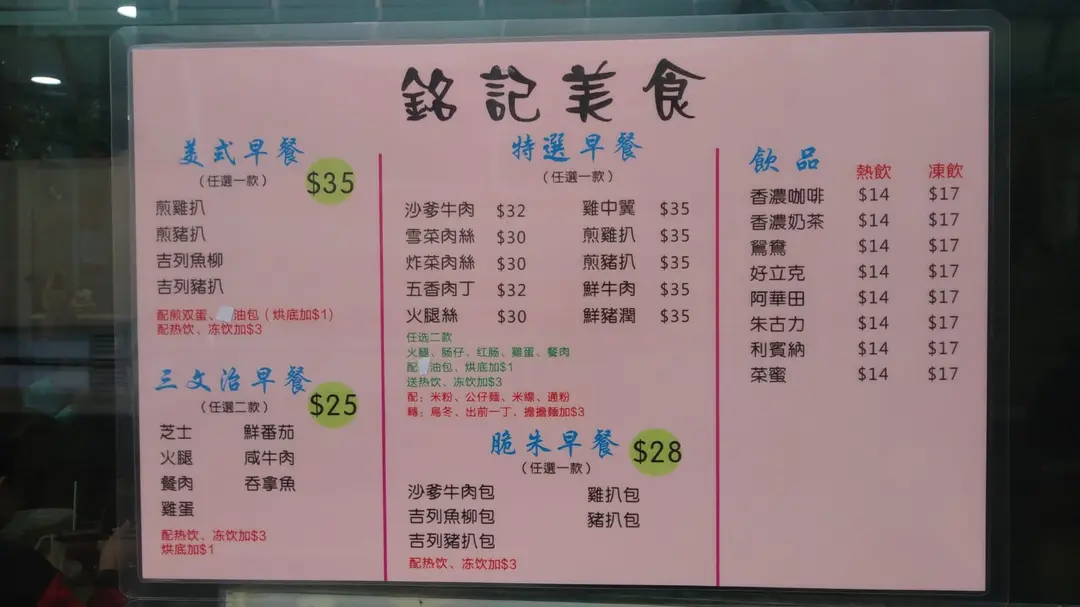 銘記美食
美式早餐
（任選一款）
$35
煎雞扒
煎豬扒
吉列魚柳
吉列豬扒
配煎双蛋、油包（烘底加$1）
配热饮、冻饮加$3
三文治早餐
（任選二款）
$25
芝士 鮮番茄
火腿 咸牛肉
餐肉 吞拿魚
雞蛋
配热饮、冻饮加$3
烘底加$1
特選早餐
（任選一款）
沙爹牛肉 $32 雞中翼 $35
雪菜肉絲 $30 煎雞扒 $35
炸菜肉絲 $30 煎豬扒 $35
五香肉丁 $32 鮮牛肉 $35
火腿絲 $30 鮮豬潤 $35
任选二款
火腿、肠仔、红肠、雞蛋、餐肉
配油包、烘底加$1
送热饮、冻饮加$3
配：米粉、公仔麵、米線、通粉
轉：烏冬、出前一丁、擔擔麵加$3
脆朱早餐
（任選一款）
$28
沙爹牛肉包 雞扒包
吉列魚柳包 豬扒包
吉列豬扒包
配热饮、冻饮加$3
飲品 熱飲 凍飲
香濃咖啡 $14 $17
香濃奶茶 $14 $17
鴛鴦 $14 $17
好立克 $14 $17
阿華田 $14 $17
朱古力 $14 $17
利賓納 $14 $17
菜蜜 $14 $17